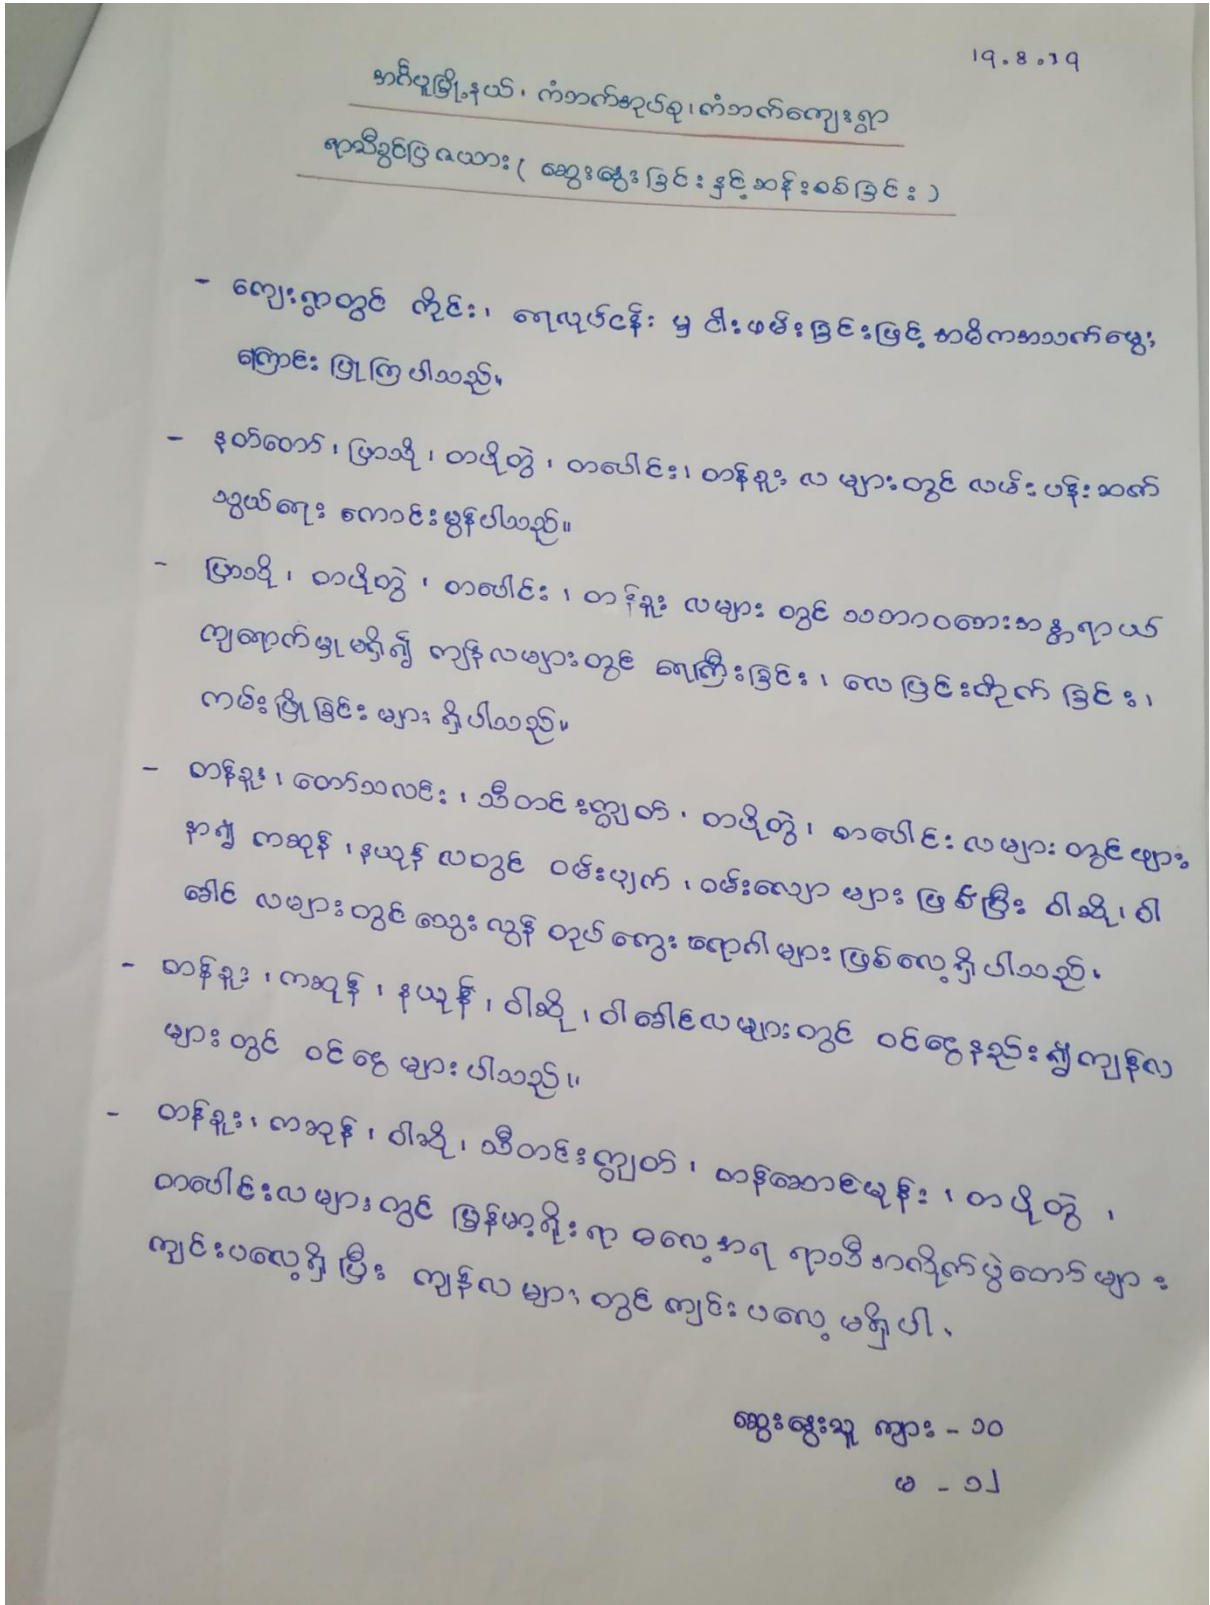 19.8.19
အင်္ဂပူမြို့နယ်၊ ကံဘက်အုပ်စု၊ ကံဘက်ကျေးရွာ
ရာသီခွင်ပြဇယား ( ဆွေးနွေးခြင်းနှင့်ဆန်းစစ်ခြင်း )
- ကျေးရွာတွင် ကိုင်း၊ ရေလုပ်ငန်း မှ ငါးဖမ်းခြင်းဖြင့် အဓိကအသက်မွေး
ကြောင်း ပြုကြပါသည်။
- နတ်တော်၊ ပြာသို၊ တပို့တွဲ၊ တပေါင်း၊ တန်ခူး လ များတွင် လမ်းပန်းဆက်
သွယ်ရေး ကောင်းမွန်ပါသည်။
- ပြာသို၊ တပို့တွဲ၊ တပေါင်း၊ တန်ခူး လများ တွင် သဘာဝဘေးအန္တရာယ်
ကျရောက်မှု မရှိ၍ ကျန်လများတွင် ရေကြီးခြင်း၊ လေပြင်းတိုက်ခြင်း၊
ကမ်းပြိုခြင်း များ ရှိပါသည်။
- တန်ခူး၊ တော်သလင်း၊ သီတင်းကျွတ်၊ တပို့တွဲ၊ တပေါင်း လများ တွင် ဖျား
နာ၍ ကဆုန်၊ နယုန် လတွင် ဝမ်းပျက်၊ ဝမ်းလျော များ ဖြစ်ပြီး ဝါဆို၊ ဝါ
ခေါင် လများတွင် သွေးလွန် တုပ်ကွေး ရောဂါများ ဖြစ်လေ့ရှိပါသည်။
- တန်ခူး၊ ကဆုန်၊ နယုန်၊ ဝါဆို၊ ဝါခေါင်လများတွင် ဝင်ငွေနည်း၍ ကျန်လ
များတွင် ဝင်ငွေ များပါသည်။
- တန်ခူး၊ ကဆုန်၊ ဝါဆို၊ သီတင်းကျွတ်၊ တန်ဆောင်မုန်း၊ တပို့တွဲ၊
တပေါင်းလများတွင် မြန်မာ့ရိုးရာ ဓလေ့အရ ရာသီအလိုက်ပွဲတော်များ
ကျင်းပလေ့ရှိပြီး ကျန်လ များ တွင် ကျင်းပလေ့ မရှိပါ။
ဆွေးနွေးသူ ကျား - ၁၀
မ - ၁၂